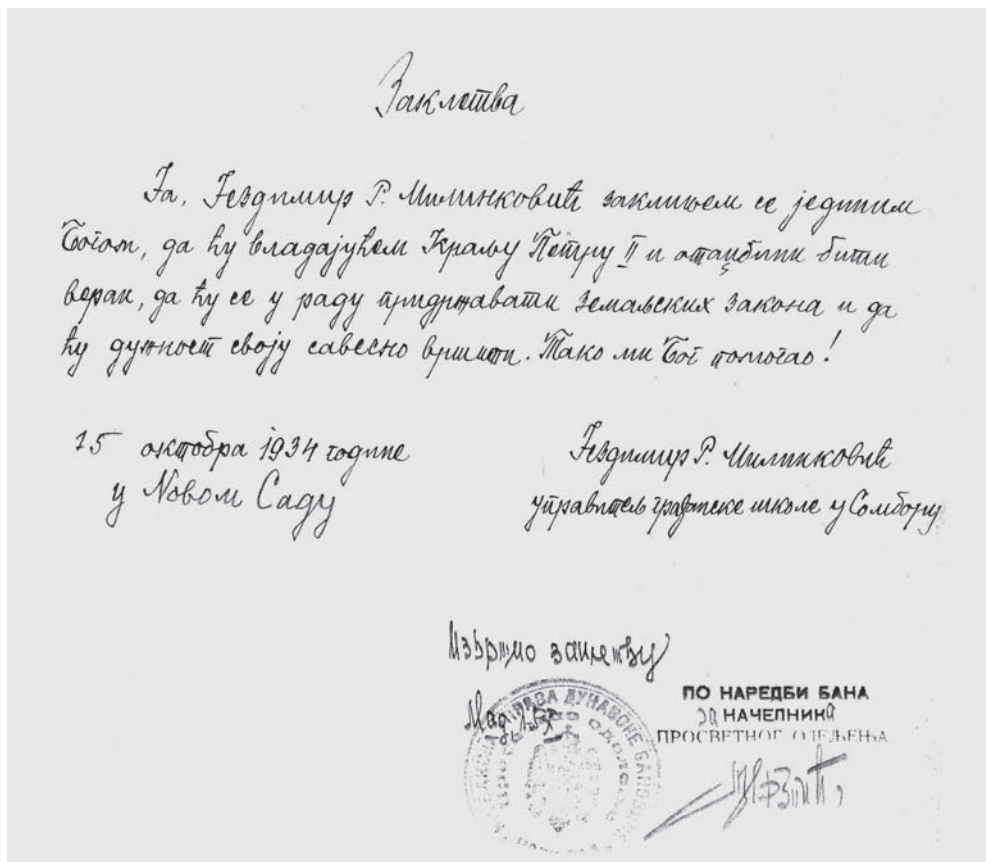 Заклетва
Ја, Јездимир Р. Милинковић заклињем се јединим
Богом, да ћу владајућем Краљу Петру II и отаџбини бити
веран, да ћу се у раду придржавати земаљских закона и да
ћу дужност своју савесно вршити. Тако ми Бог помогао!
15 октобра 1934 године
у Новом Саду
Јездимир Р. Милинковић
управитељ грађанске школе у Сомбору
заклетву
ПО НАРЕДБИ БАНА
за НАЧЕЛНИКА
ПРОСВЕТНОГ ОДЕЉЕЊА
УПРАВА ДУНАВСКЕ БАНОВИНЕ